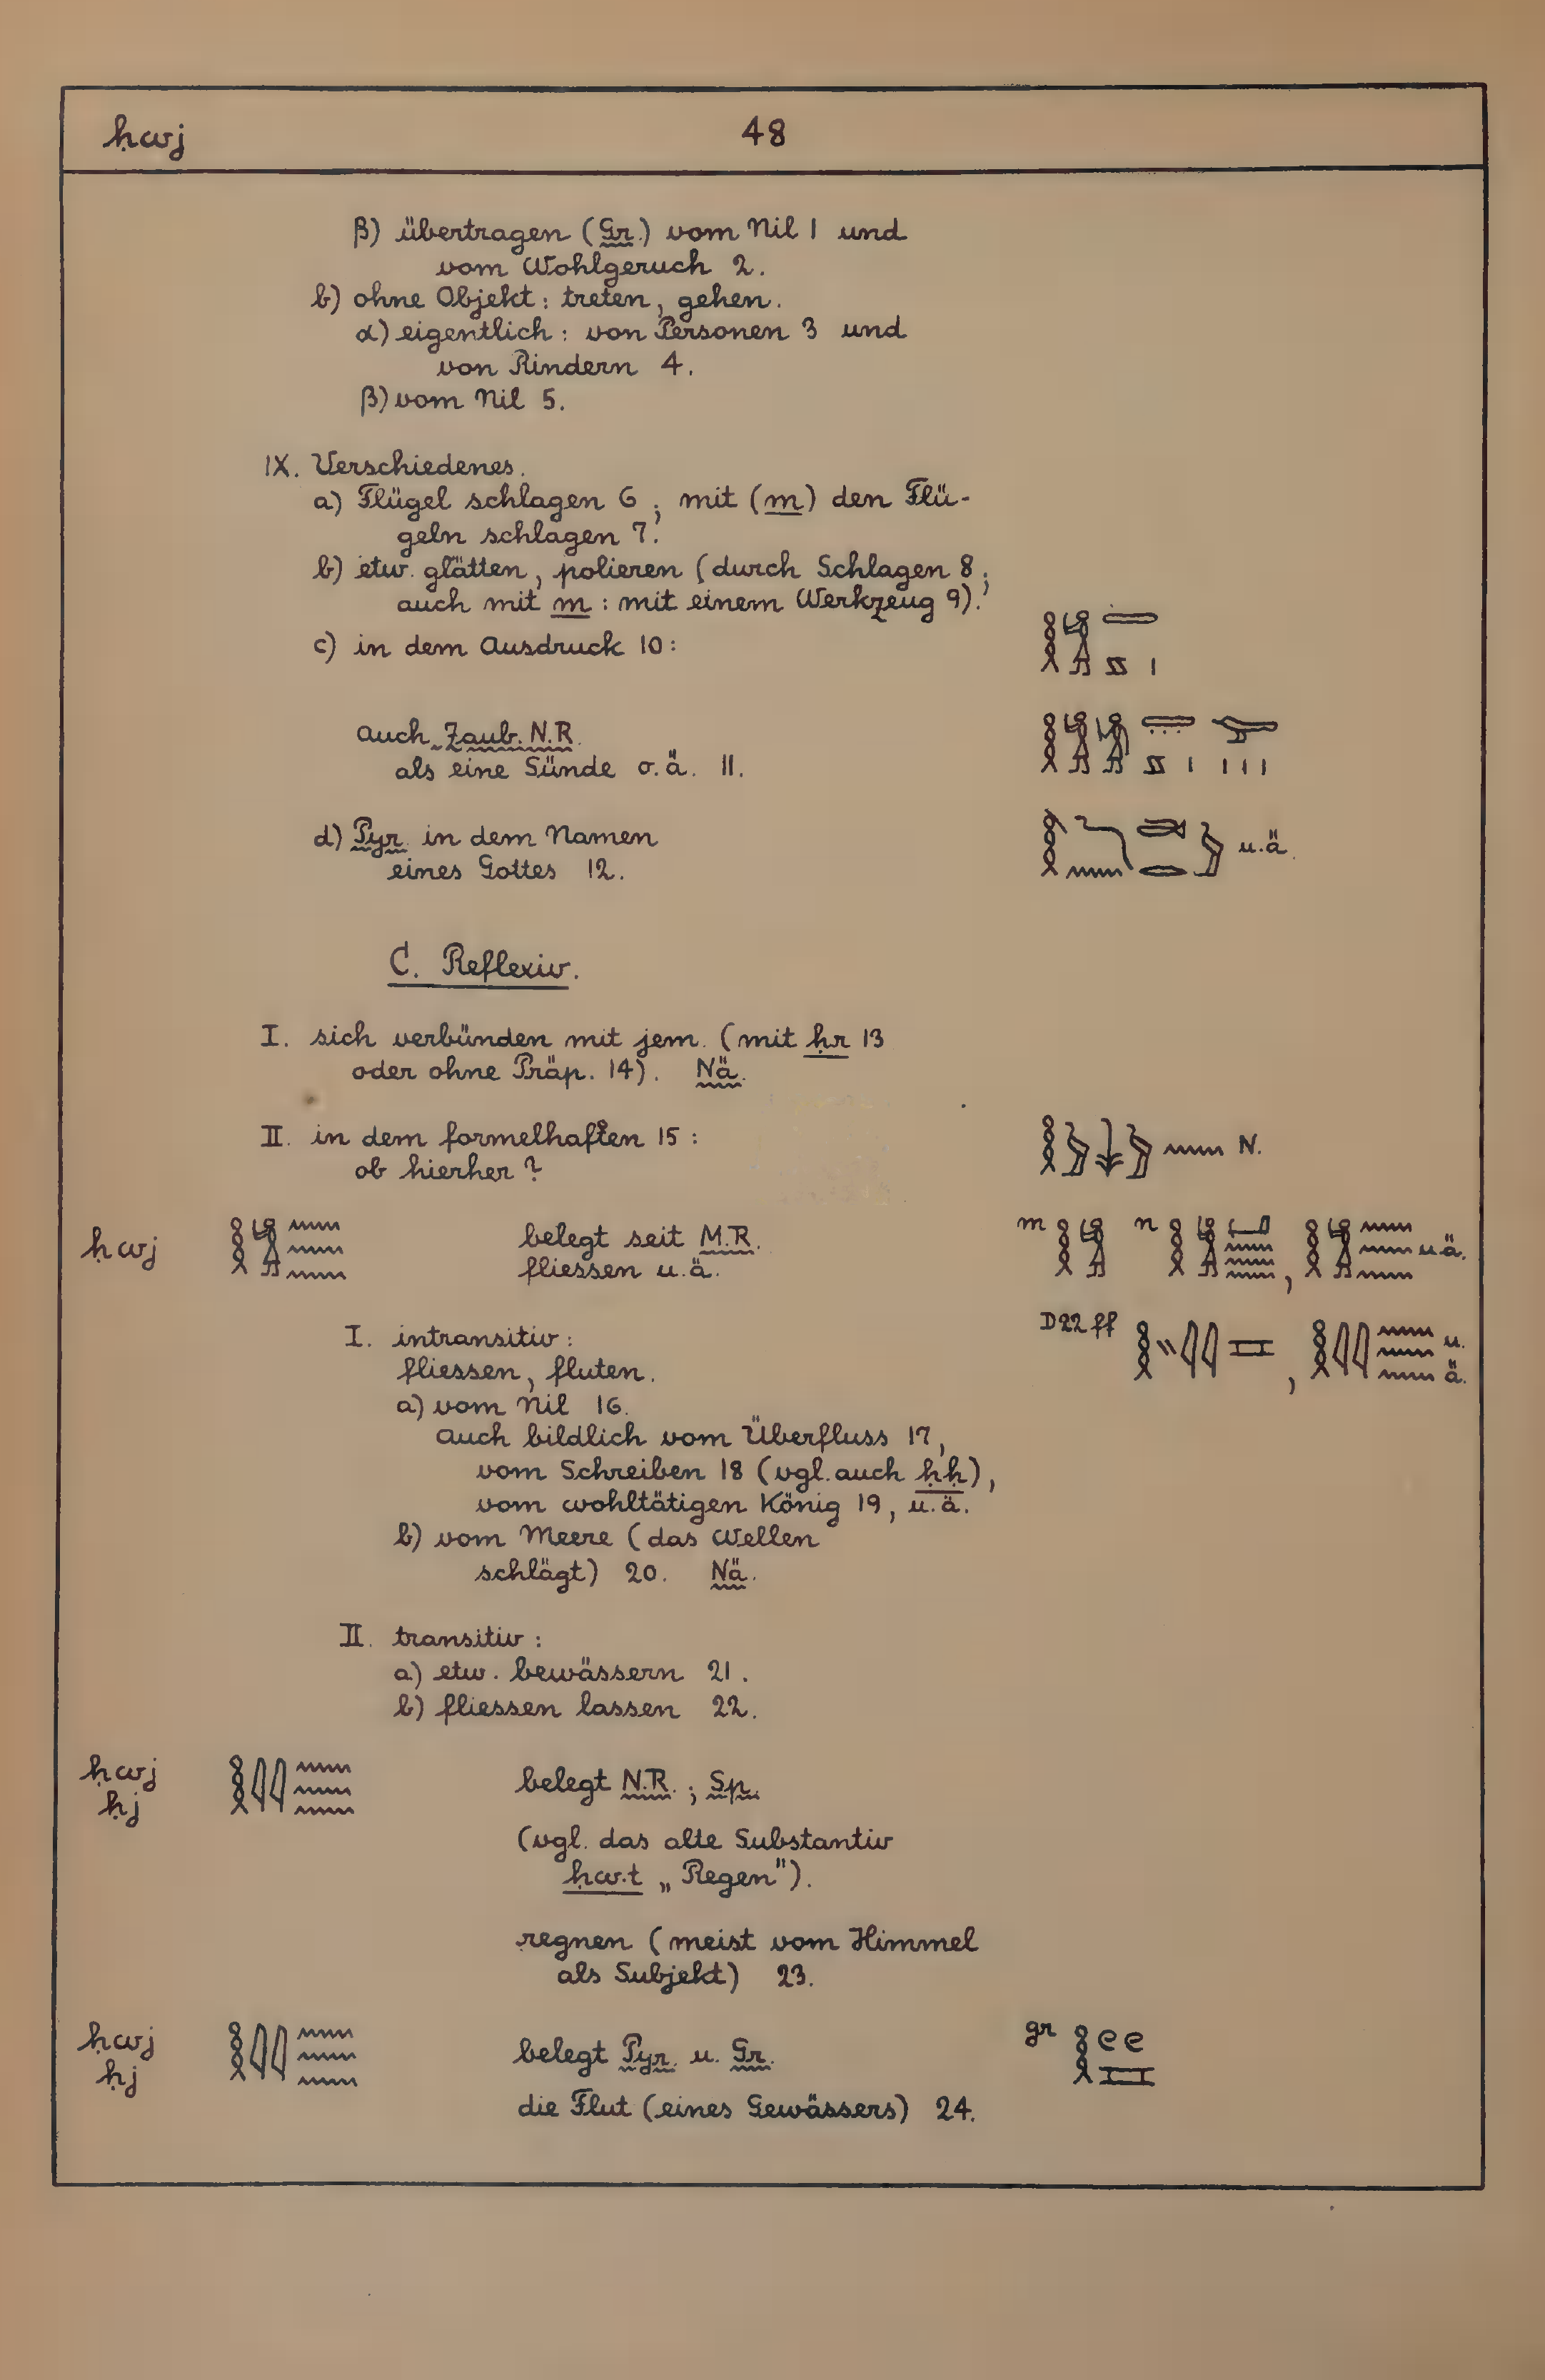 ḥwj 48
β) übertragen (Gr.) vom Nil 1 und
vom Wohlgeruch 2.
b) ohne Objekt: treten, gehen.
α) eigentlich: von Personen 3 und
von Rindern 4.
β) vom Nil 5.
IX. Verschiedenes.
a) Flügel schlagen 6; mit (m) den Flü-
geln schlagen 7.
b) etw. glätten, polieren (durch Schlagen 8;
auch mit m: mit einem Werkzeug 9).
c) in dem Ausdruck 10:
auch Zaub. N.R.
als eine Sünde o.ä. 11.
d) Pyr. in dem Namen u.ä.
eines Gottes 12.
C. Reflexiv.
I. sich verbünden mit jem. (mit ḥr 13
oder ohne Präp. 14). Nä.
II. in dem formelhaften 15: N.
ob hierher?
ḥwj belegt seit M.R. m n , u.ä.
fliessen u.ä.
I. intransitiv: D22ff , u.ä.
fliessen, fluten.
a) vom Nil 16.
auch bildlich vom Überfluss 17,
vom Schreiben 18 (vgl. auch ḥḥ),
vom wohltätigen König 19, u.ä.
b) vom Meere (das Wellen
schlägt) 20. Nä.
II. transitiv:
a) etw. bewässern 21.
b) fliessen lassen 22.
ḥwj belegt N.R.; Sp.
ḥj
(vgl. das alte Substantiv
ḥw.t „Regen").
regnen (meist vom Himmel
als Subjekt) 23.
ḥwj belegt Pyr. u. Gr. gr
ḥj
die Flut (eines Gewässers) 24.